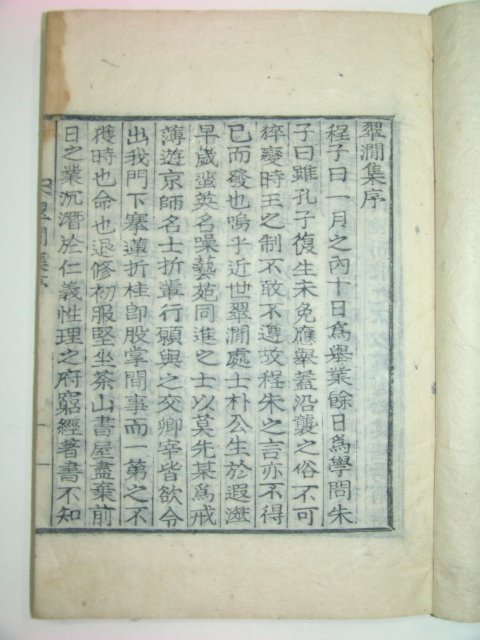 翠澗集序
程子曰一月之內十日爲擧業餘日爲學問朱
子曰雖孔子復生未免應擧蓋沿襲之俗不可
猝變時王之制不敢不遵故程朱之言亦不得
已而發也嗚乎近世翠澗處士朴公生於遐澨
早歲蜚英名噪藝苑同進之士以莫先某爲戒
薄遊京師名士折輩行願與之交卿宰皆欲令
出我門下搴蓮折桂卽股掌間事而一第之不
獲時也命也退修初服堅坐茶山書屋盡棄前
日之業沉潛於仁義性理之府窮經著書不知